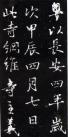 粵以長安四年歲
次甲辰四月七日
此寺綱維寺主義